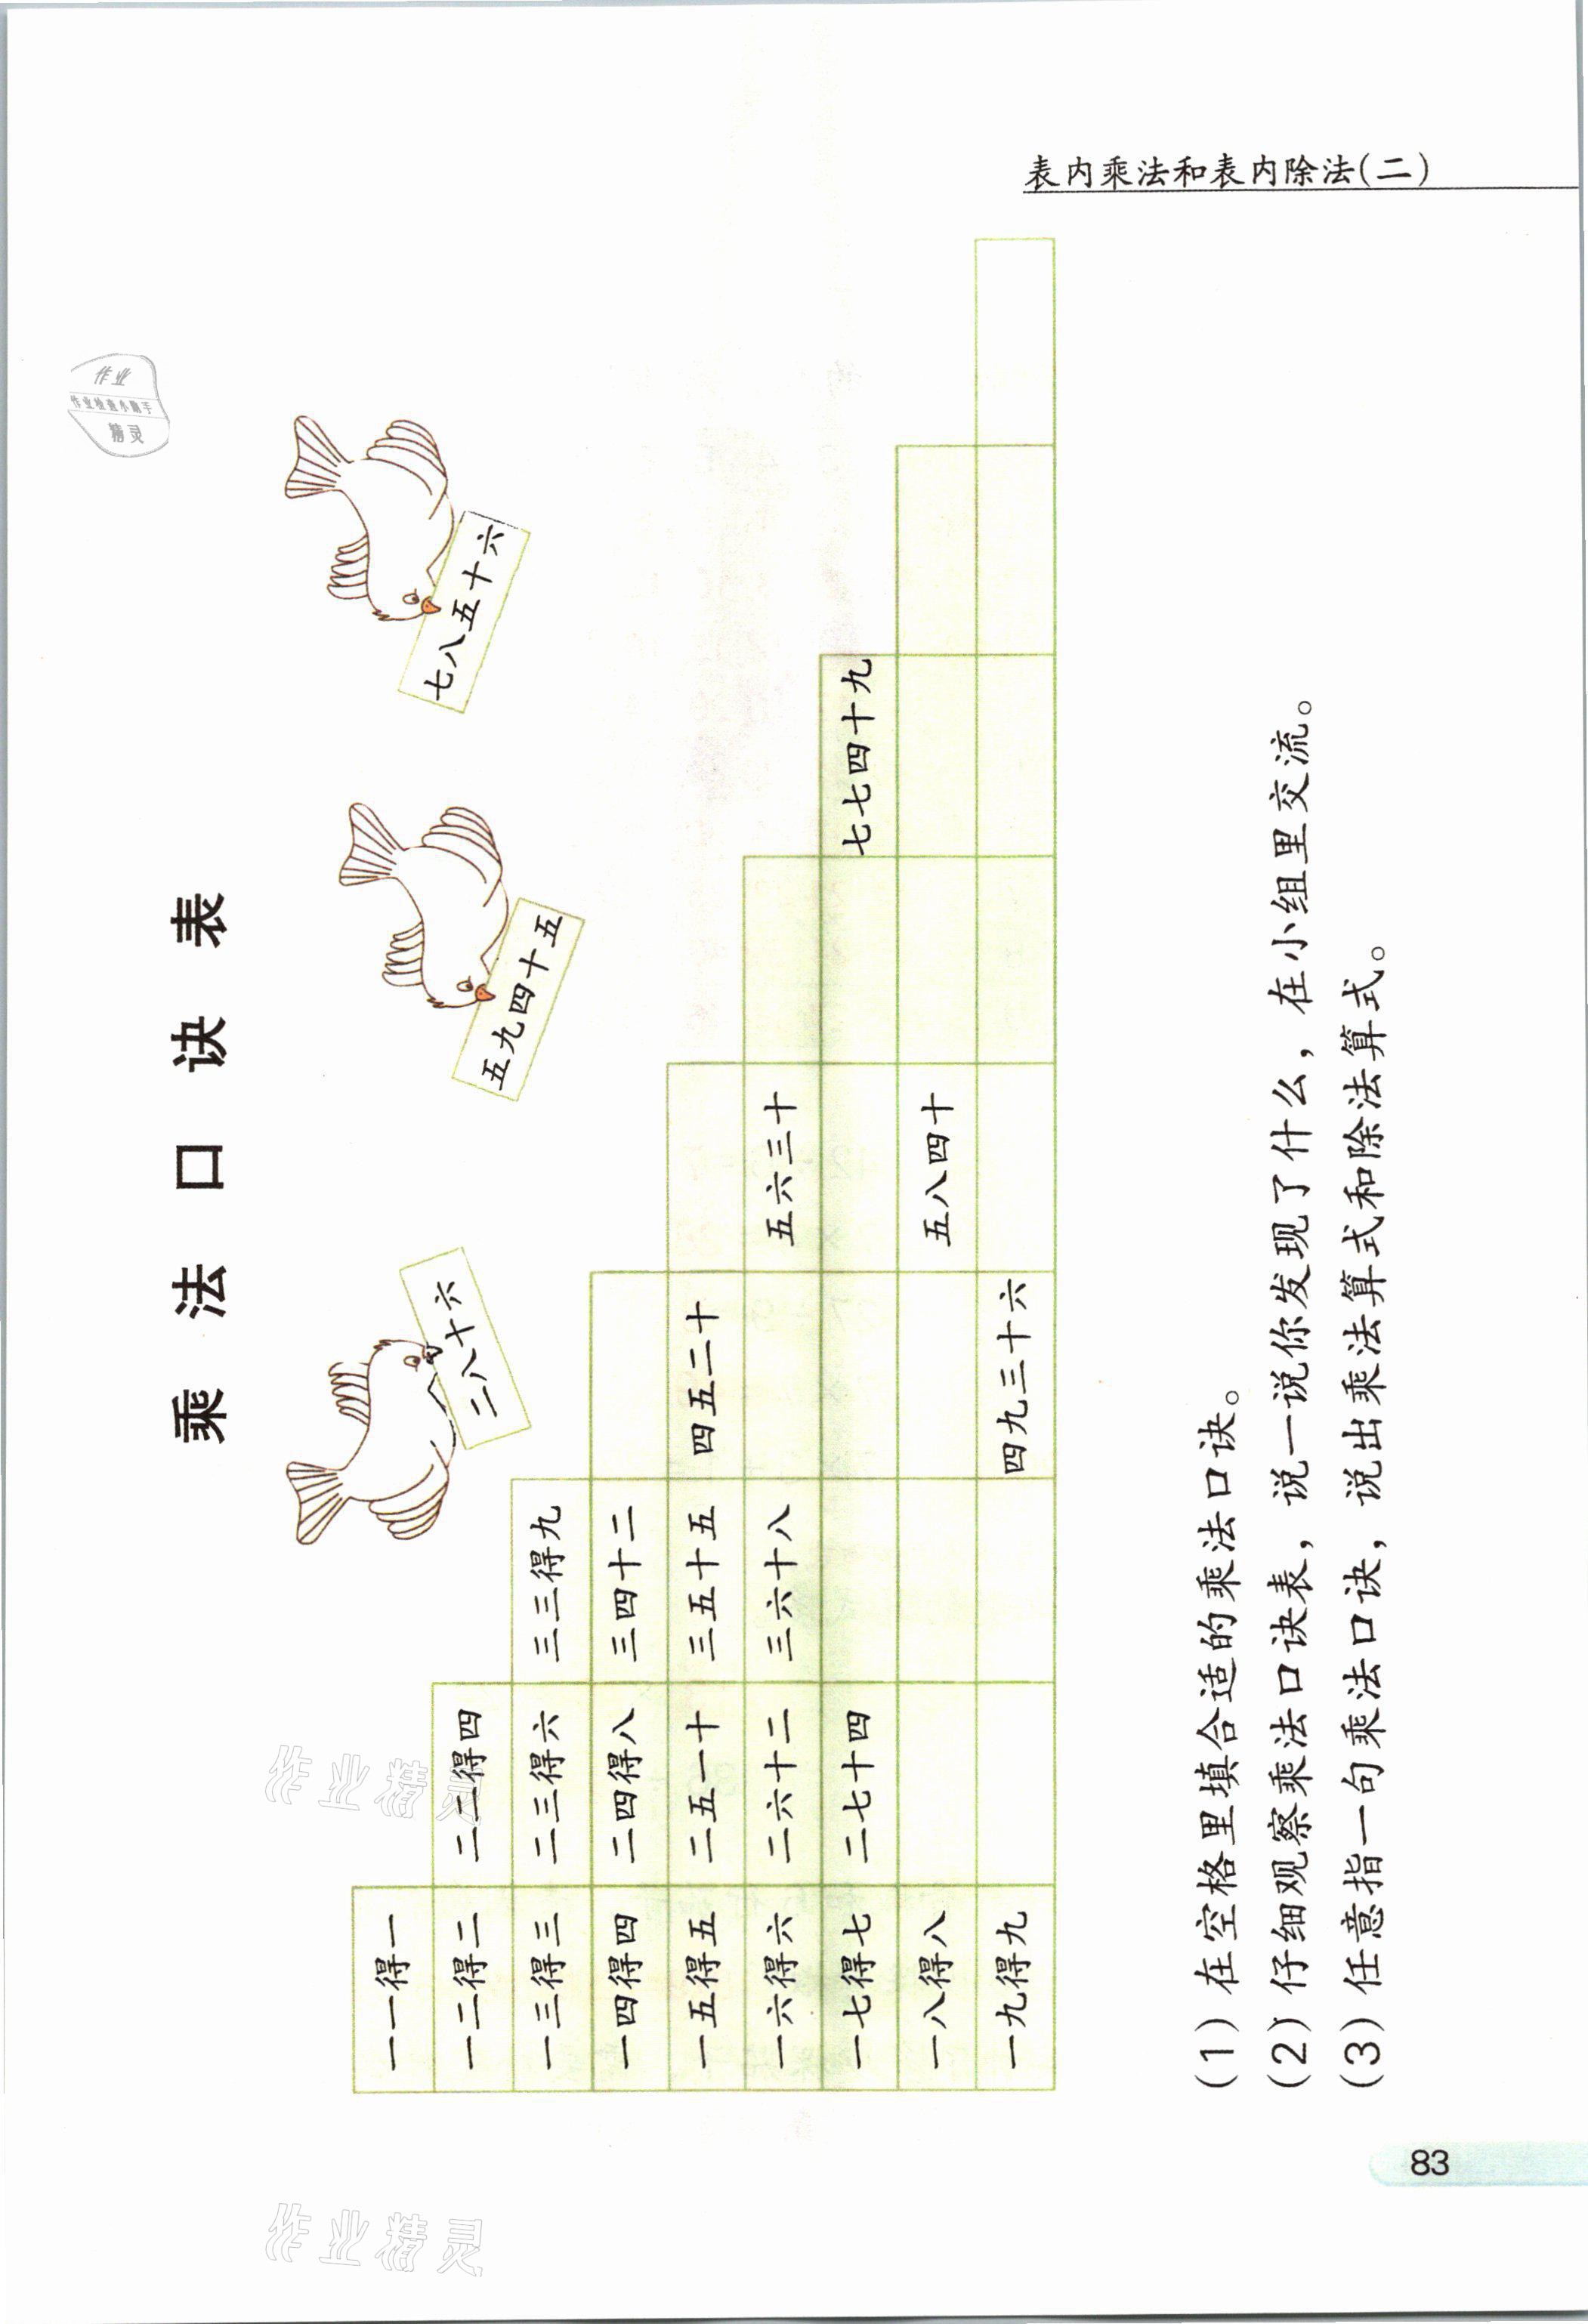 表内乘法和表内除法(二)
乘法口诀表
二八十六
五九四十五
七八五十六
一一得一
一二得二 二二得四
一三得三 二三得六 三三得九
一四得四 二四得八 三四十二
一五得五 二五一十 三五十五 四五二十
一六得六 二六十二 三六十八 五六三十
一七得七 二七十四 七七四十九
一八得八 五八四十
一九得九 四九三十六
(1) 在空格里填合适的乘法口诀。
(2) 仔细观察乘法口诀表，说一说你发现了什么，在小组里交流。
(3) 任意指一句乘法口诀，说出乘法算式和除法算式。
83
作业
作业检查小助手
精灵
作业精灵
作业精灵